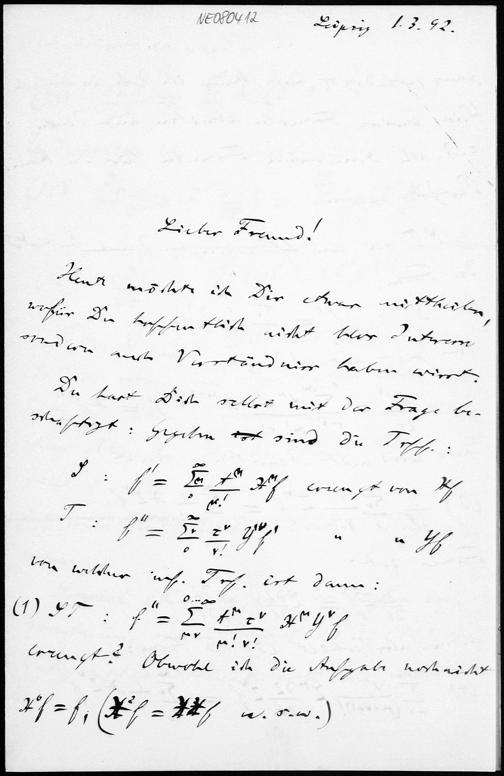 NE080412
Leipzig 1.3.92.
Lieber Freund!
Heute möchte ich Dir etwas mittheilen,
wofür Du hoffentlich nicht blos Interesse
sondern auch Verständniss haben wirst.
Du hast Dich selbst mit der Frage be-
schäftigt: gegeben ist sind die Trff.:
S : f' = ∑₀^∞ μ t^μ/μ! X^μ f erzeugt von Xf
T : f'' = ∑₀^∞ ν τ^ν/ν! Y'^ν f' " " Yf
von welcher inf. Trf. ist dann:
(1) ST : f'' = ∑_{μν}^{0…∞} t^μ τ^ν/μ! ν! X^μ Y^ν f
erzeugt? Obwohl ich die Aufgabe noch nicht
X⁰f = f, (X²f = XXf u.s.w.)